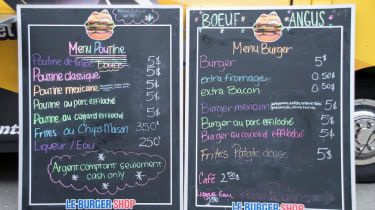 Menu Burger
Menu Poutine
Poutine classique 5$
Poutine mexicaine 5$
Poutine au porc effiloché 5$
Poutine au canard effiloché 5$
Frites ou Chips Maison 3,50$
Liqueur / Eau 2,50$
Argent comptant seulement
cash only
LE BURGER SHOP
BOEUF ANGUS
Menu Burger
Burger 5$
extra fromage 0.50$
extra Bacon 0.50$
Burger mexicain 5$
Burger au porc effiloché 5$
Burger au canard effiloché 5$
Frites Patate douce 5$
Café 2.50$
LE BURGER SHOP